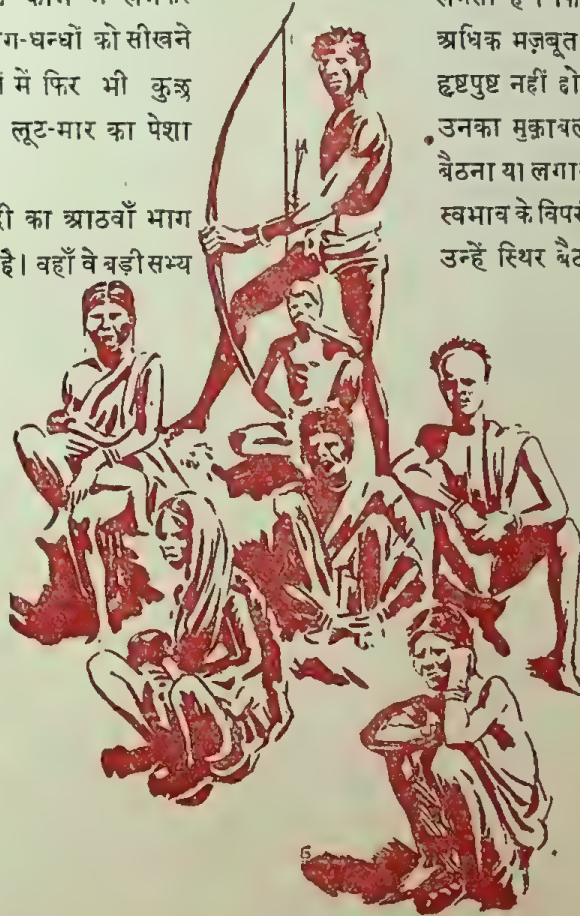 ग-धन्धों को सीखने
में फिर भी कुछ
लूट-मार का पेशा
री का आठवाँ भाग
है। वहाँ वे बड़ी सभ्य
अधिक मज़बूत
हृष्टपुष्ट नहीं हो
उनका मुक़ाबल
बैठना या लगा
स्वभाव के विपर
उन्हें स्थिर बैठ